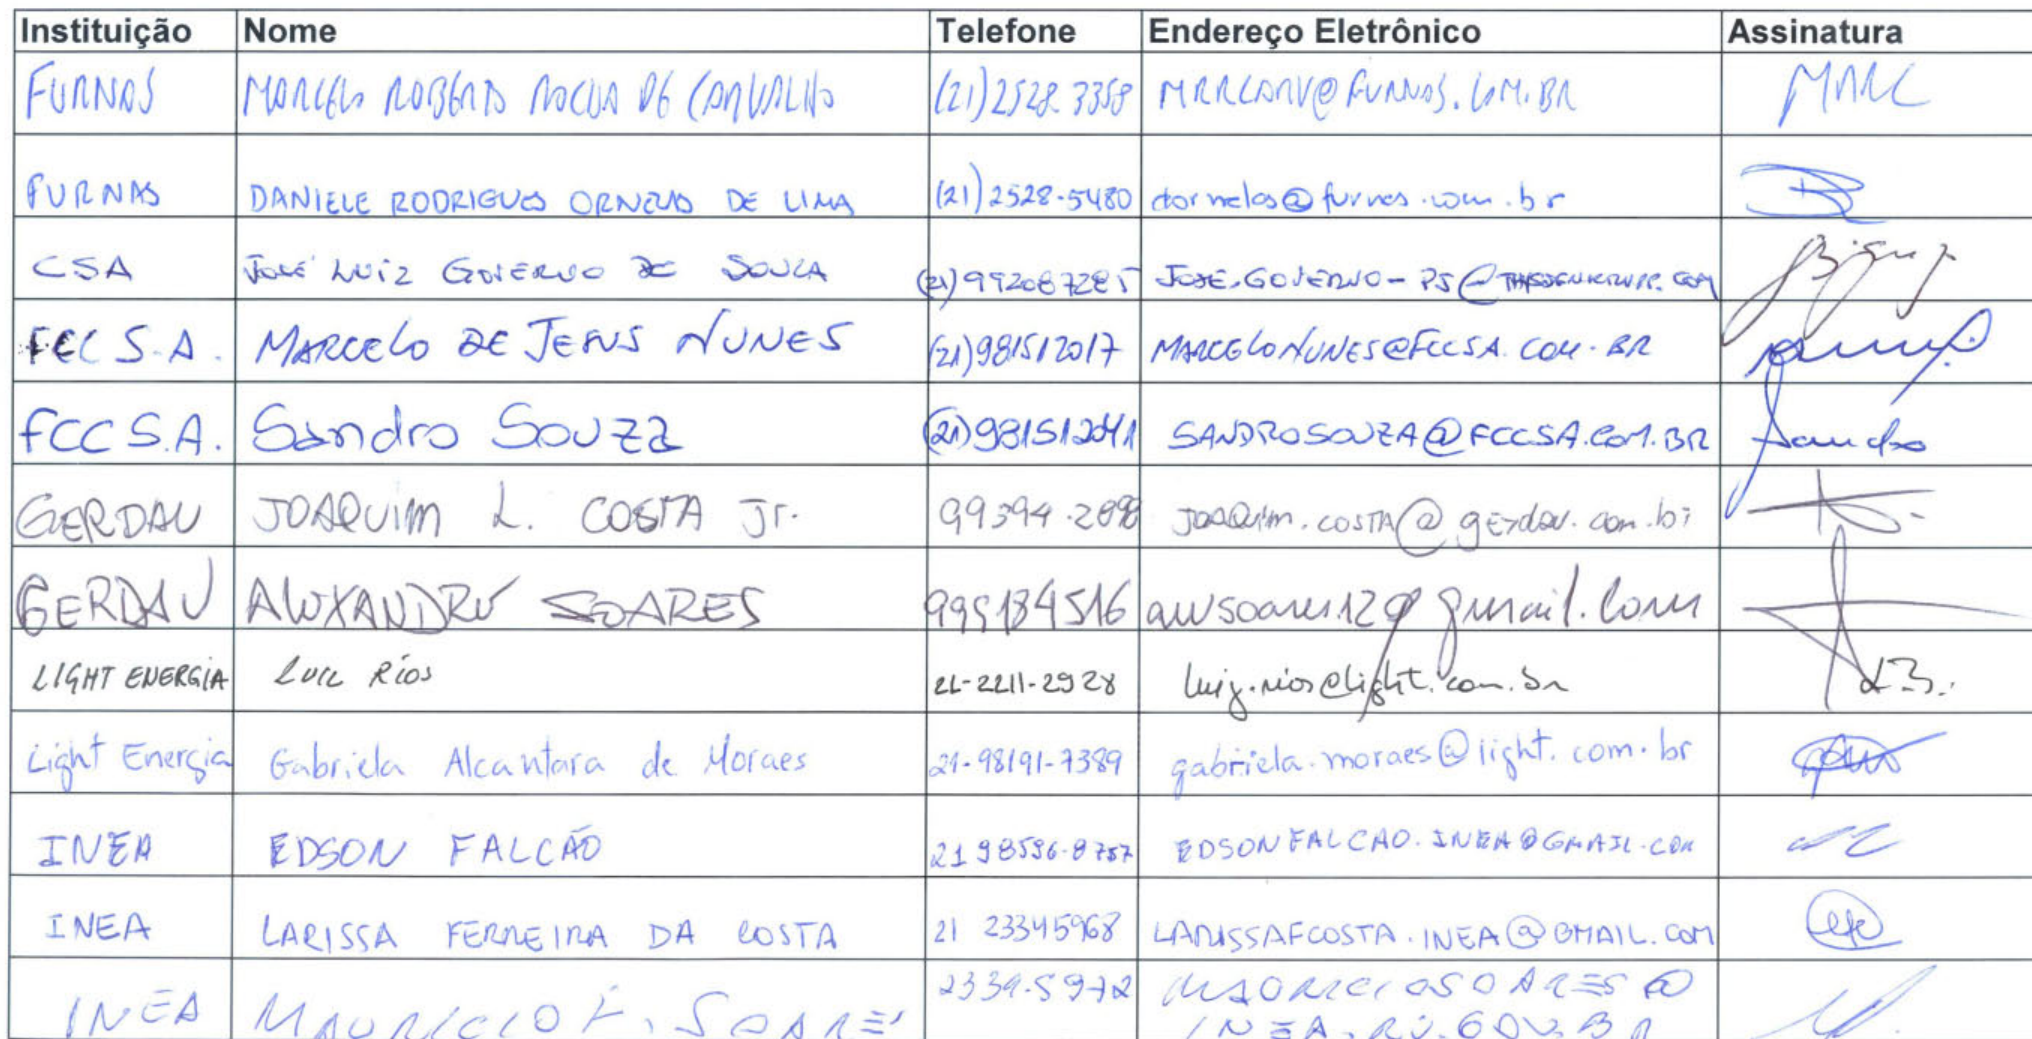 Instituição Nome Telefone Endereço Eletrônico Assinatura
FURNAS MARCELO ROBERTO ROCHA DE CARVALHO (21)2528.3358 MRRCARV@FURNAS.COM.BR MRRC
FURNAS DANIELE RODRIGUES ORNELAS DE LIMA (21)2528-5480 dornelas@furnas.com.br
CSA JOSÉ LUIZ GOVERNO DE SOUZA (21)992087285
FCC S.A. MARCELO DE JESUS NUNES (21)981512017 MARCELONUNES@FCCSA.COM.BR
FCC S.A. Sandro Souza (21)981512041 SANDROSOUZA@FCCSA.COM.BR Sandro
GERDAU JOAQUIM L. COSTA Jr. JOAQUIM.COSTA@gerdau.com.br
GERDAU ALEXANDRE SOARES 995184516
LIGHT ENERGIA LUIZ RIOS 21-2211-2928 luiz.rios@light.com.br
Light Energia Gabriela Alcantara de Moraes 21-98191-7389 gabriela.moraes@light.com.br
INEA EDSON FALCÃO 21 98596-8757 EDSONFALCAO.INEA@GMAIL.COM
INEA LARISSA FERREIRA DA COSTA 21 23345968 LARISSAFCOSTA.INEA@GMAIL.COM
INEA MAURICIO F. SOARES 2334-5972 MAURICIOSOARES@
INEA.RJ.GOV.BR